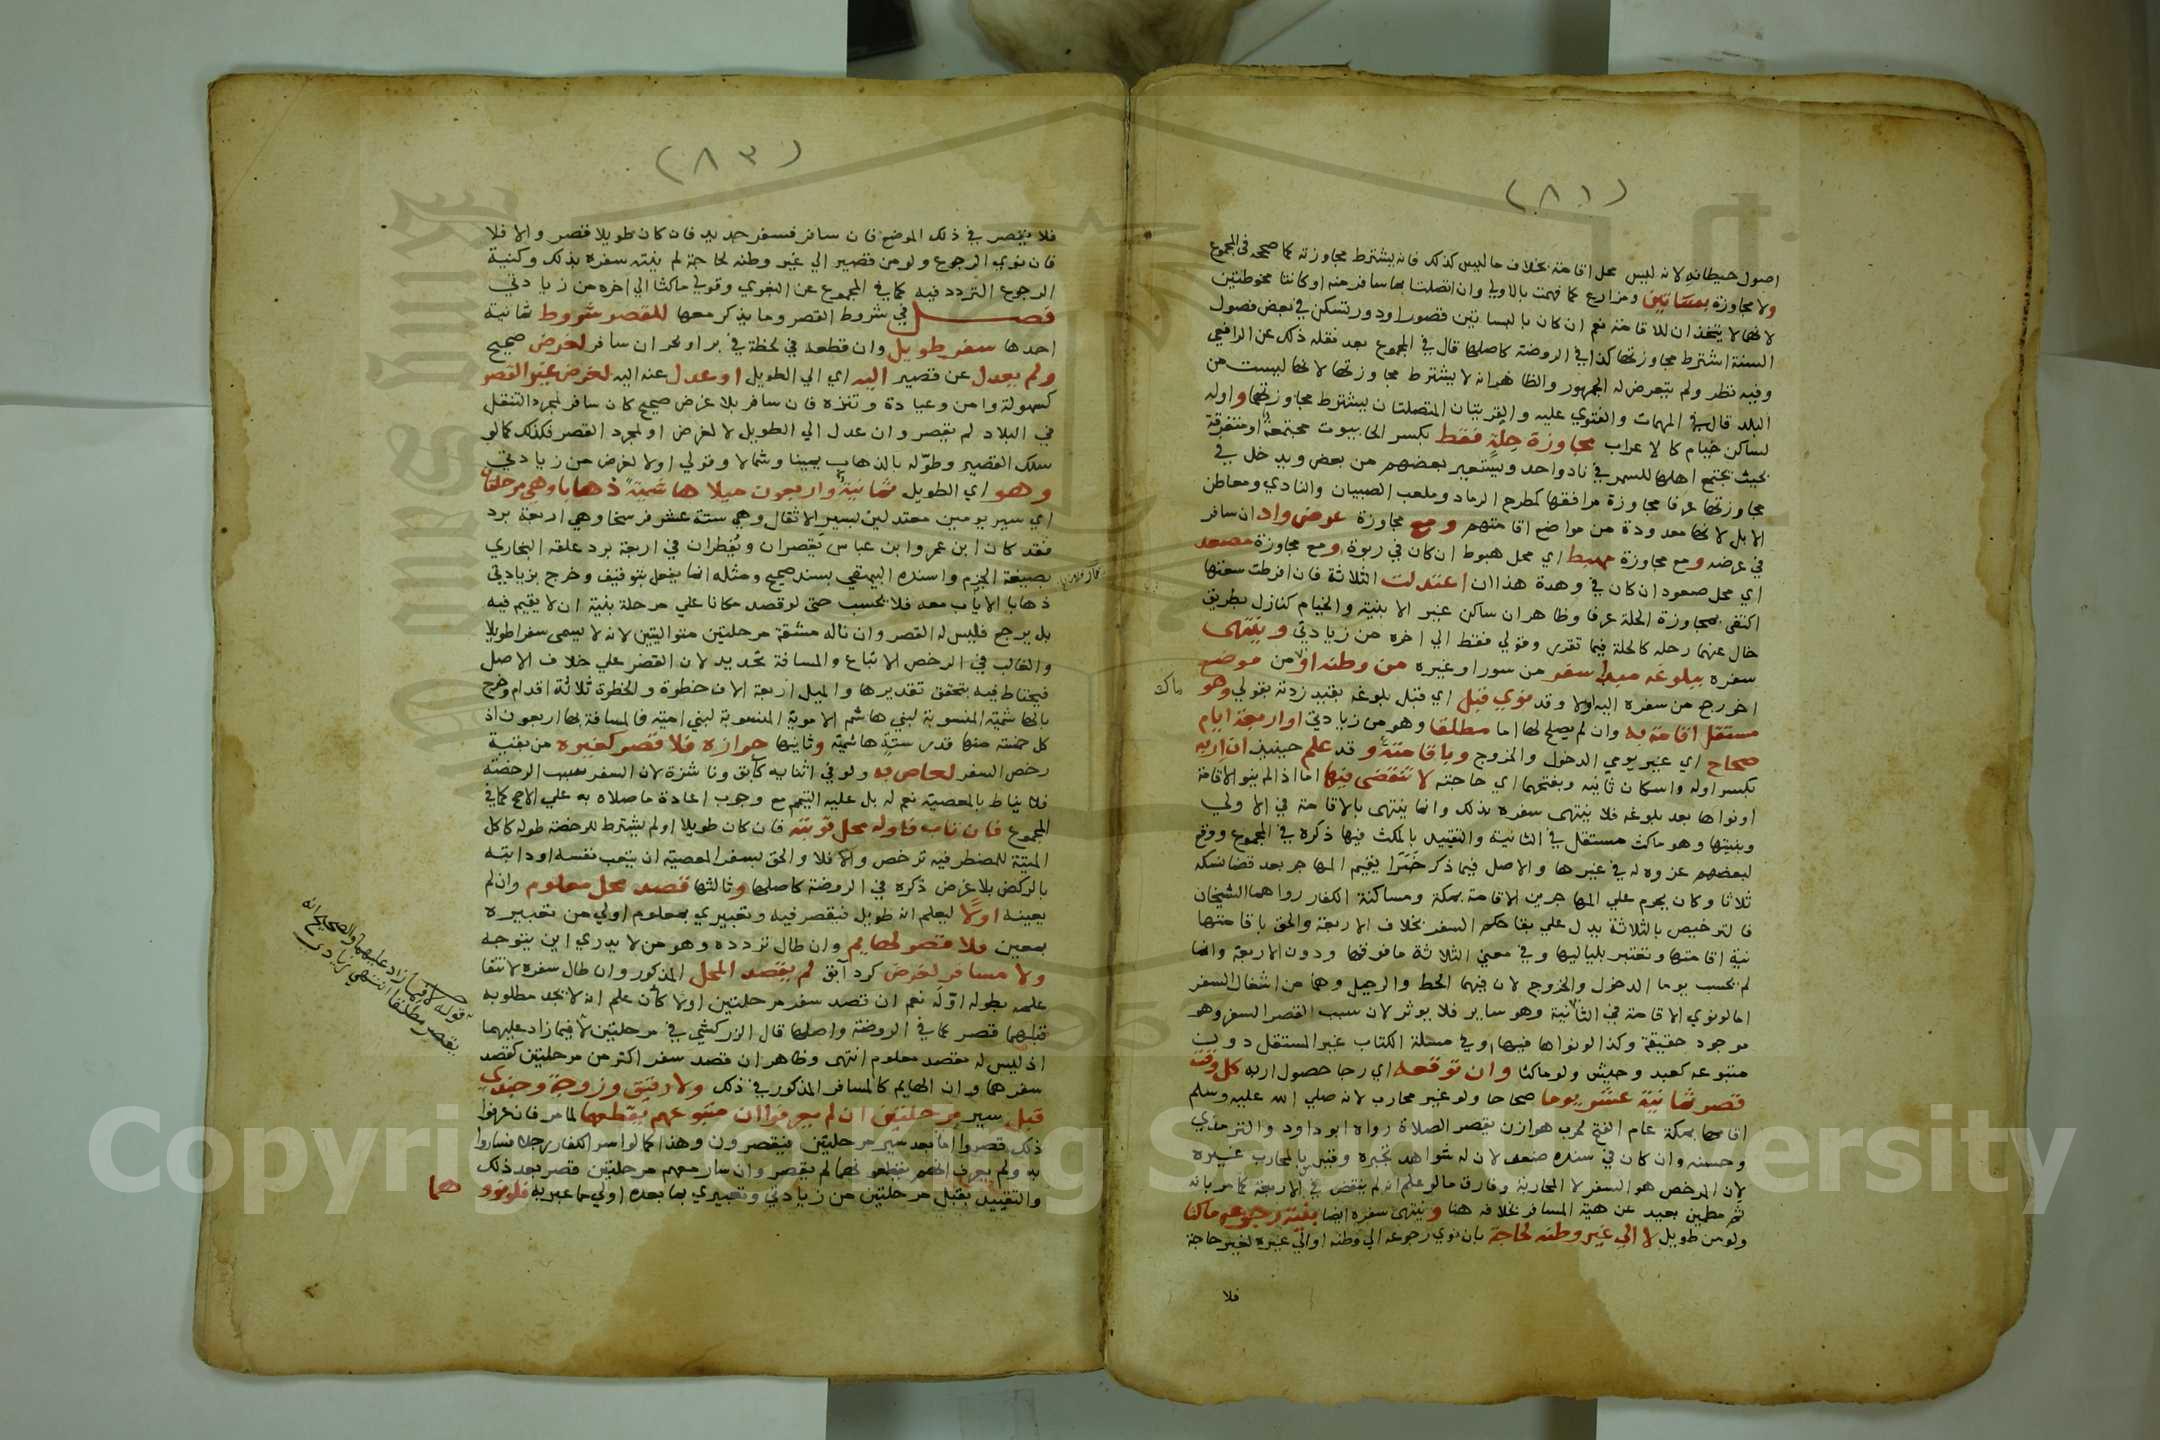 (٨١)
اصول حيطانه لانه ليس محل اقامة بخلاف ما ليس كذلك فانه يشترط مجاوزته كما صححه في المجموع
ولا مجاوزة بساتين ومزارع كما فهمت بالاولي وان اتصلتا بما سافر منه او كانتا محوطتين
لانهما لا يتخذان للاقامة نعم ان كان بالبساتين قصور او دور تسكن في بعض فصول
السنة اشترط مجاوزتها كذا في الروضة كاصلها قال في المجموع بعد نقله ذلك عن الرافعي
وفيه نظر ولم يتعرض له الجمهور والظاهر انه لا يشترط مجاوزتها لانها ليست من
البلد قال في المهمات والفتوي عليه والقريتان المتصلتان يشترط مجاوزتهما واوله
لساكن خيام كالاعراب مجاوزة حلة فقط بكسر الحا بيوت مجتمعة او متفرقة
بحيث يجتمع اهلها للسمر في ناد واحد ويستعير بعضهم من بعض ويدخل في
مجاوزتها عرفا مجاوزة مرافقها كمطرح الرماد وملعب الصبيان والنادي ومعاطن
الابل لانها معدودة من مواضع اقامتهم ومع مجاوزة عرض واد ان سافر
في عرضه ومع مجاوزة مهبط اي محل هبوط ان كان في ربوة ومع مجاوزة مصعد
اي محل صعود ان كان في وهدة هذا ان اعتدلت الثلاثة فان افرطت سعتها
اكتفي بمجاوزة الحلة عرفا وظاهر ان ساكن غير الابنية والخيام كنازل بطريق
خال عنهما رحله كالحلة فيما تقرر وقولي فقط الي اخره من زيادتي وينتهي
سفره ببلوغه مبدا سفر من سور او غيره من وطنه او من موضع
اخر رجع من سفره اليه اولا وقد نوي قبل اي قبل بلوغه بقيد زدته بقولي وهو
ماكث
مستقل اقامة به وان لم يصلح لها اما مطلقا وهو من زيادتي او اربعة ايام
صحاح اي غير يومي الدخول والخروج وباقامته وقد علم حينيذ ان اربه
بكسر اوله واسكان ثانيه وبفتحهما اي حاجته لا تنقضي فيها اما اذا لم ينو الاقامة
او نواها بعد بلوغه فلا ينتهي سفره بذلك وانما ينتهي بالاقامة في الاولي
وبنيتها وهو ماكث مستقل في الثانية والتقييد بالمكث فيها ذكره في المجموع ووقع
لبعضهم عزوه له في غيرها والاصل فيما ذكر خبرا يقيم المهاجر بعد قضا نسكه
ثلاثا وكان يحرم علي المهاجرين الاقامة بمكة ومساكنة الكفار رواهما الشيخان
فالترخيص بالثلاثة يدل علي بقا حكم السفر بخلاف الاربعة والحق باقامتها
نية اقامتها وتعتبر بلياليها وفي معني الثلاثة ما فوقها ودون الاربعة وانما
لم يحسب يوما الدخول والخروج لان فيهما الحط والرحيل وهما من اشغال السفر
اما لو نوي الاقامة في الثانية وهو ساير فلا يوثر لان سبب القصر السفر وهو
موجود حقيقة وكذا لو نواها فيها وفي مسئلة الكتاب غير المستقل دون
متبوعه كعبد وجيش ولو ماكثا وان توقعه اي رجا حصول اربه كل وقت
قصر ثمانية عشر يوما صحاحا ولو غير محارب لانه صلي الله عليه وسلم
اقامها بمكة عام الفتح لحرب هوازن يقصر الصلاة رواه ابو داود والترمذي
وحسنه وان كان في سنده ضعف لان له شواهد تجبره وقيس بالمحارب غيره
لان المرخص هو السفر لا المحاربة وفارق ما لو علم انه لم ينقض في الاربعة كما مر بانه
ثم مطمين بعيد عن هيئة المسافر بخلافه هنا وينتهي سفره ايضا بنية رجوعه ماكثا
ولو من طويل لا الي غير وطنه لحاجة بان نوي رجوعه الي وطنه او الي غيره لغير حاجة
فلا
(٨٣)
فلا يقصر في ذلك الموضع فان سافر فسفر جديد فان كان طويلا قصر والا فلا
فان نوي الرجوع ولو من قصير الي غير وطنه لحاجة لم ينته سفره بذلك وكنية
الرجوع التردد فيه كما في المجموع عن البغوي وقولي ماكثا الي اخره من زيادتي
فصل في شروط القصر وما يذكر معها للقصر شروط ثمانية
احدها سفر طويل وان قطعه في لحظة في بر او بحر ان سافر لغرض صحيح
ولم يعدل عن قصير اليه اي الي الطويل او عدل عنه اليه لغرض غير القصر
كسهولة وامن وعيادة وتنزه فان سافر بلا غرض صحيح كان سافر لمجرد التنقل
في البلاد لم يقصر وان عدل الي الطويل لا لغرض او لمجرد القصر فكذلك كما لو
سلك القصير وطوله بالذهاب يمينا وشمالا وقولي اولا لغرض من زيادتي
وهو اي الطويل ثمانية واربعون ميلا هاشمية ذهابا وهي مرحلتان
اي سير يومين معتدلين بسير الاثقال وهي ستة عشر فرسخا وهي اربعة برد
فقد كان ابن عمر وابن عباس يقصران ويفطران في اربعة برد علقه البخاري
بصيغة الجزم واسنده البيهقي بسند صحيح ومثله انما يفعل بتوقيف وخرج بزيادتي
ذهابا الاياب معه فلا يحسب حتي لو قصد مكانا علي مرحلة بنية ان لا يقيم فيه
بل يرجع فليس له القصر وان ناله مشقة مرحلتين متواليتين لانه لا يسمي سفرا طويلا
والغالب في الرخص الاتباع والمسافة تحديد لان القصر علي خلاف الاصل
فيحتاط فيه بتحقق تقديرها والميل اربعة الاف خطوة والخطوة ثلاثة اقدام وخرج
بالهاشمية المنسوبة لبني هاشم الاموية المنسوبة لبني امية فالمسافة بها اربعون اذ
كل خمسة منها قدر ستة هاشمية وثانيها جوازه فلا قصر كغيره من بقية
رخص السفر لعاص به ولو في اثنايه كابق وناشزة لان السفر سبب الرخصة
فلا يناط بالمعصية نعم له بل عليه التيمم مع وجوب اعادة ما صلاه به علي الاصح كما في
المجموع فان تاب فاوله محل توبته فان كان طويلا او لم يشترط للرخصة طوله كاكل
الميتة للمضطر فيه ترخص والا فلا والحق بسفر المعصية ان يتعب نفسه او دابته
بالركض بلا غرض ذكره في الروضة كاصلها وثالثها قصد محل معلوم وان لم
يعينه اولا ليعلم انه طويل فيقصر فيه وتعبيري بمعلوم اولي من تعبيره
بمعين فلا قصر لهايم وان طال تردده وهو من لا يدري اين يتوجه
ولا مسافر لغرض كرد آبق لم يقصد المحل المذكور وان طال سفره لانتفا
علمه بطوله اوله نعم ان قصد سفر مرحلتين اولا كان علم انه لا يجد مطلوبه
قبلهما قصر كما في الروضة واصلها قال الزركشي في مرحلتين لا فيما زاد عليهما
اذ ليس له مقصد معلوم انتهي وظاهر ان قصد سفر اكثر من مرحلتين كقصد
سفرهما وان الهايم كالمسافر المذكور في ذلك ولا رقيق وزوجة وجندي
قبل سير مرحلتين ان لم يعرفوا ان متبوعهم يقطعهما لما مر فان عرفوا
ذلك قصروا اما بعد سير مرحلتين فيقصرون وهذا كما لو اسر الكفار رجلا فساروا
به ولم يعرف انهم يقطعونهما لم يقصر وان سار معهم مرحلتين قصر بعد ذلك
والتقييد بقبل مرحلتين من زيادتي وتعبيري بما بعده اولي مما عبر به فلو نووا هما
قوله لا فيما زاد عليهما والصحيح انه
يقصر مطلقا انتهي زيادي
Copyright © King Saud University